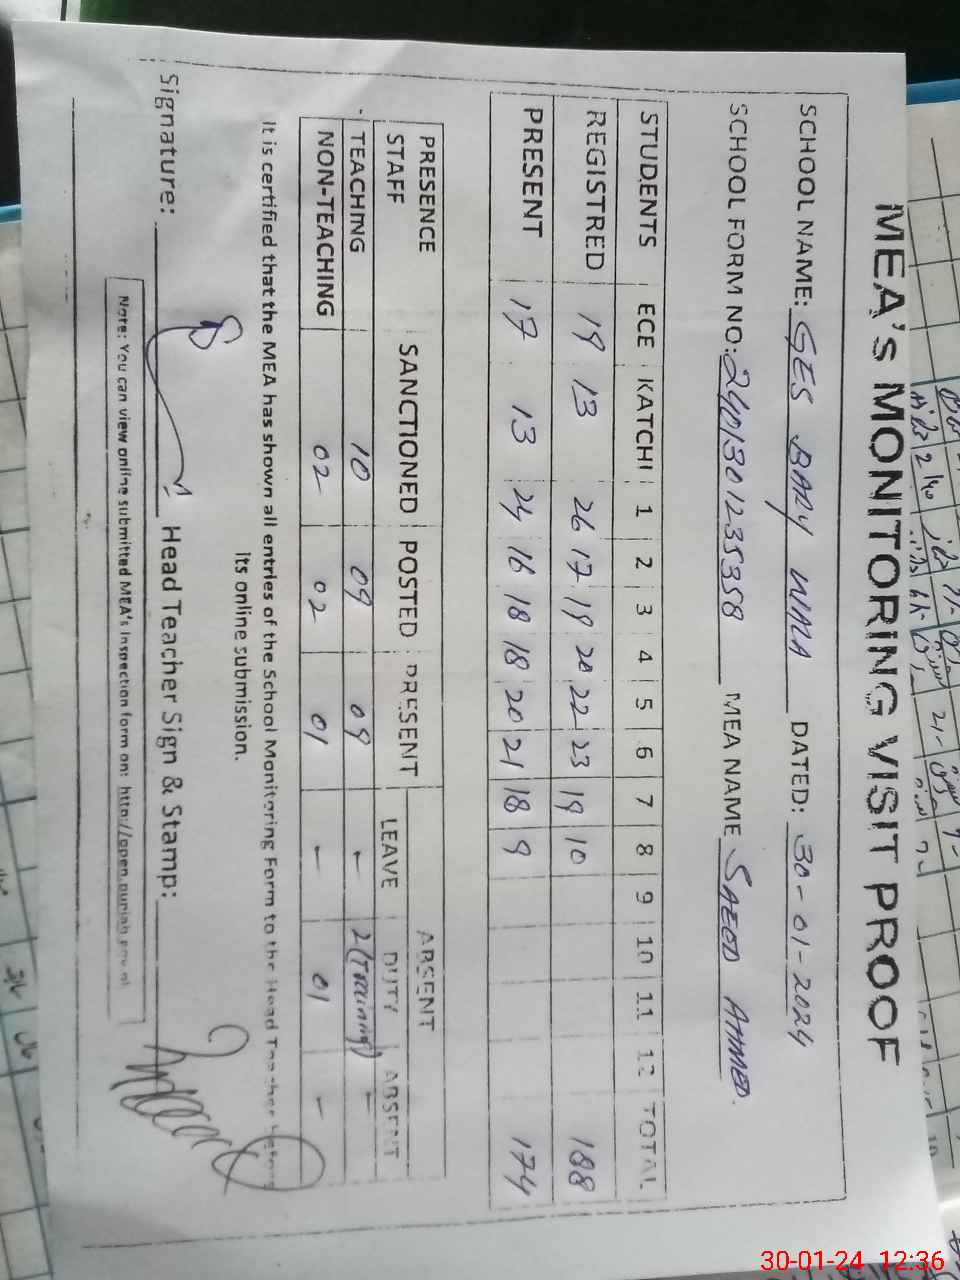 MEA's MONITORING VISIT PROOF
SCHOOL NAME: GES BARY WALA DATED: 30-01-2024
SCHOOL FORM NO: 2401301235358 MEA NAME SAEED AHMED.
STUDENTS ECE KATCHI 1 2 3 4 5 6 7 8 9 10 11 12 TOTAL
REGISTRED 19 13 26 17 19 20 22 23 19 10 188
PRESENT 17 13 24 16 18 18 20 21 18 9 174
PRESENCE ABSENT
STAFF SANCTIONED POSTED PRESENT LEAVE DUTY ABSENT
TEACHING 10 09 09 - 2(Training) -
NON-TEACHING 02 02 01 - 01 -
It is certified that the MEA has shown all entries of the School Monitoring Form to the Head Teacher before
its online submission.
Signature: Head Teacher Sign & Stamp:
Note: You can view online submitted MEA's Inspection form on: http://open.punjab.gov.pk
30-01-24 12:36